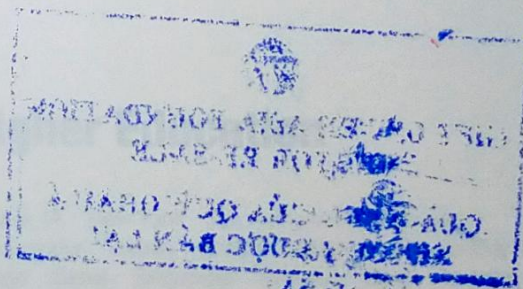 GIFT OF THE ASIA FOUNDATION
NOT FOR RE-SALE
QUÀ CỦA QUỸ CHÂU Á
KHÔNG ĐƯỢC BÁN LẠI